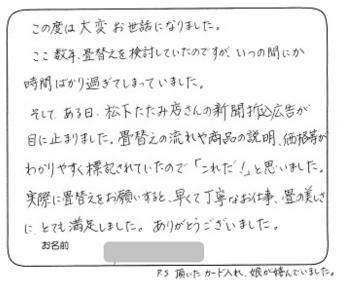 この度は大変お世話になりました。
ここ数年、畳替えを検討していたのですが、いつの間にか
時間ばかり過ぎてしまっていました。
そして、ある日、松下たたみ店さんの新聞折込広告が
目に止まりました。畳替えの流れや商品の説明、価格等が
わかりやすく標記されていたので「これだ!」と思いました。
実際に畳替えをお願いすると、早くて丁寧なお仕事、畳の美しさ
に、とても満足しました。ありがとうございました。
お名前
P.S 頂いたカード入れ、娘が喜んでいました。